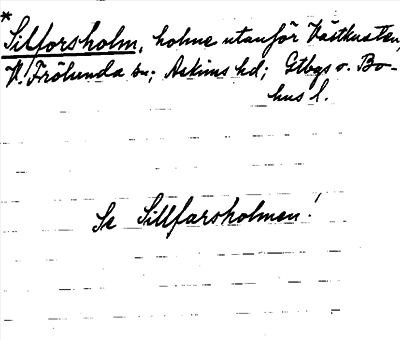 *
Silforsholm, holme utanför Västkusten,
V. Frölunda sn; Askims hd; Gtbgs o. Bo-
hus l.
Se Sillfarsholmen!